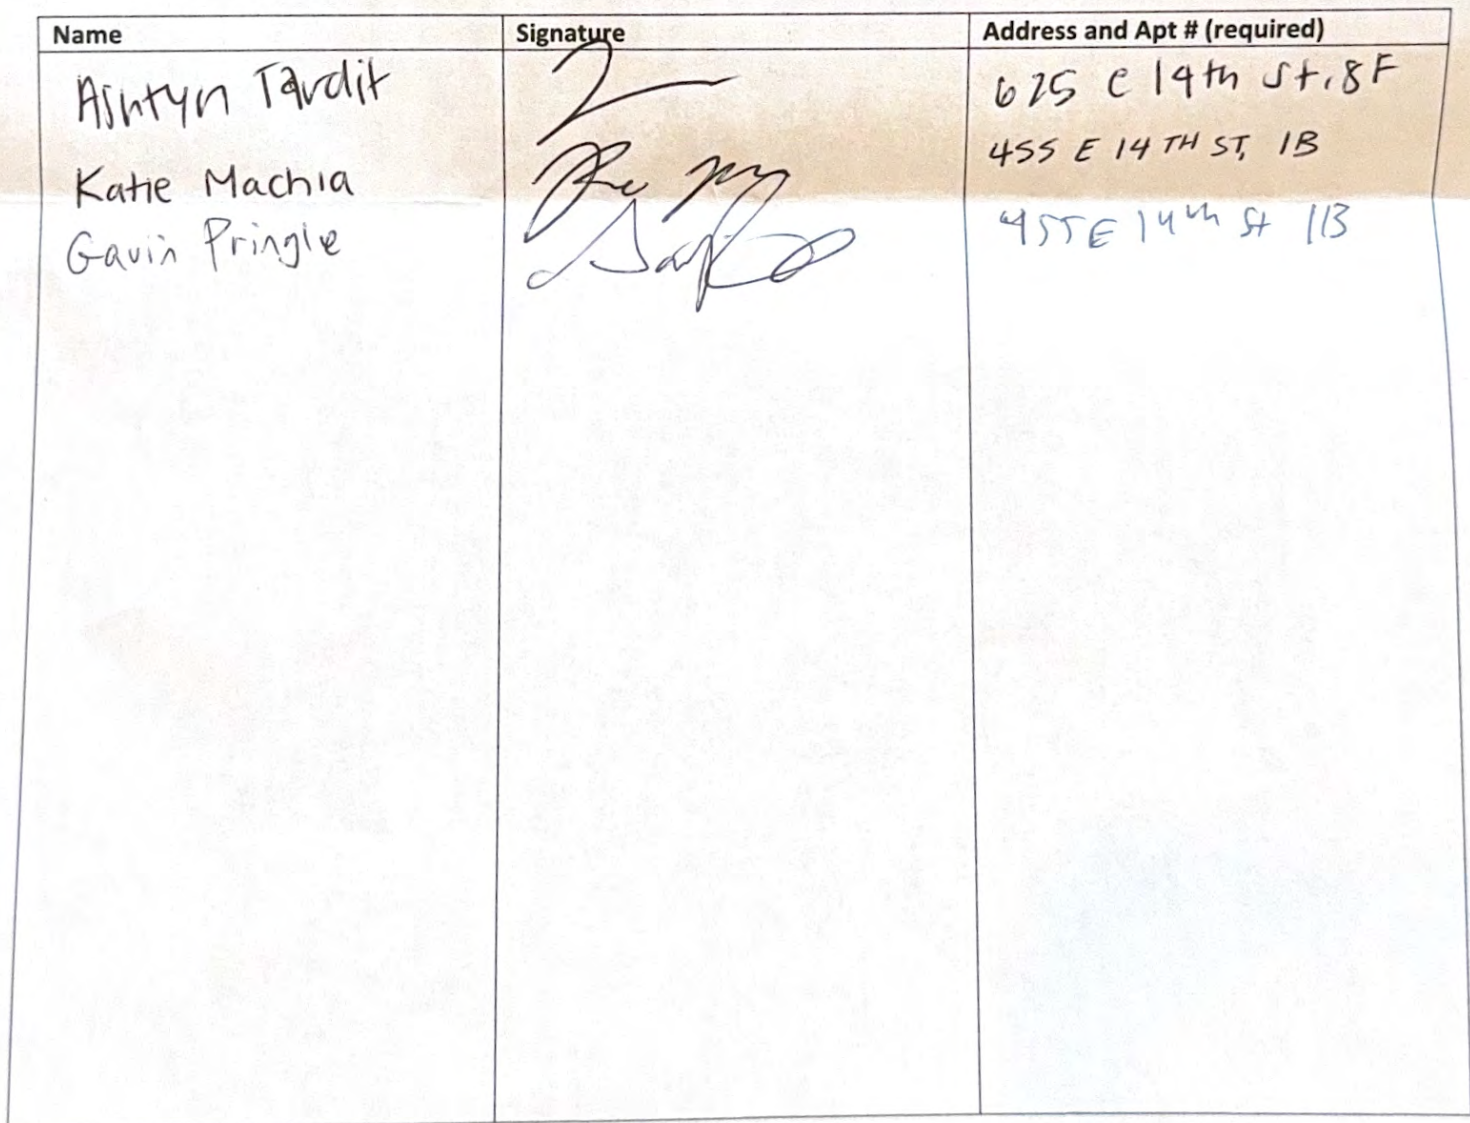 Name Signature Address and Apt # (required)
Ashtyn Tardit 625 e 14th St. 8F
Katie Machia 455 E 14TH ST, 1B
Gavin Pringle 455 E 14th St 11B